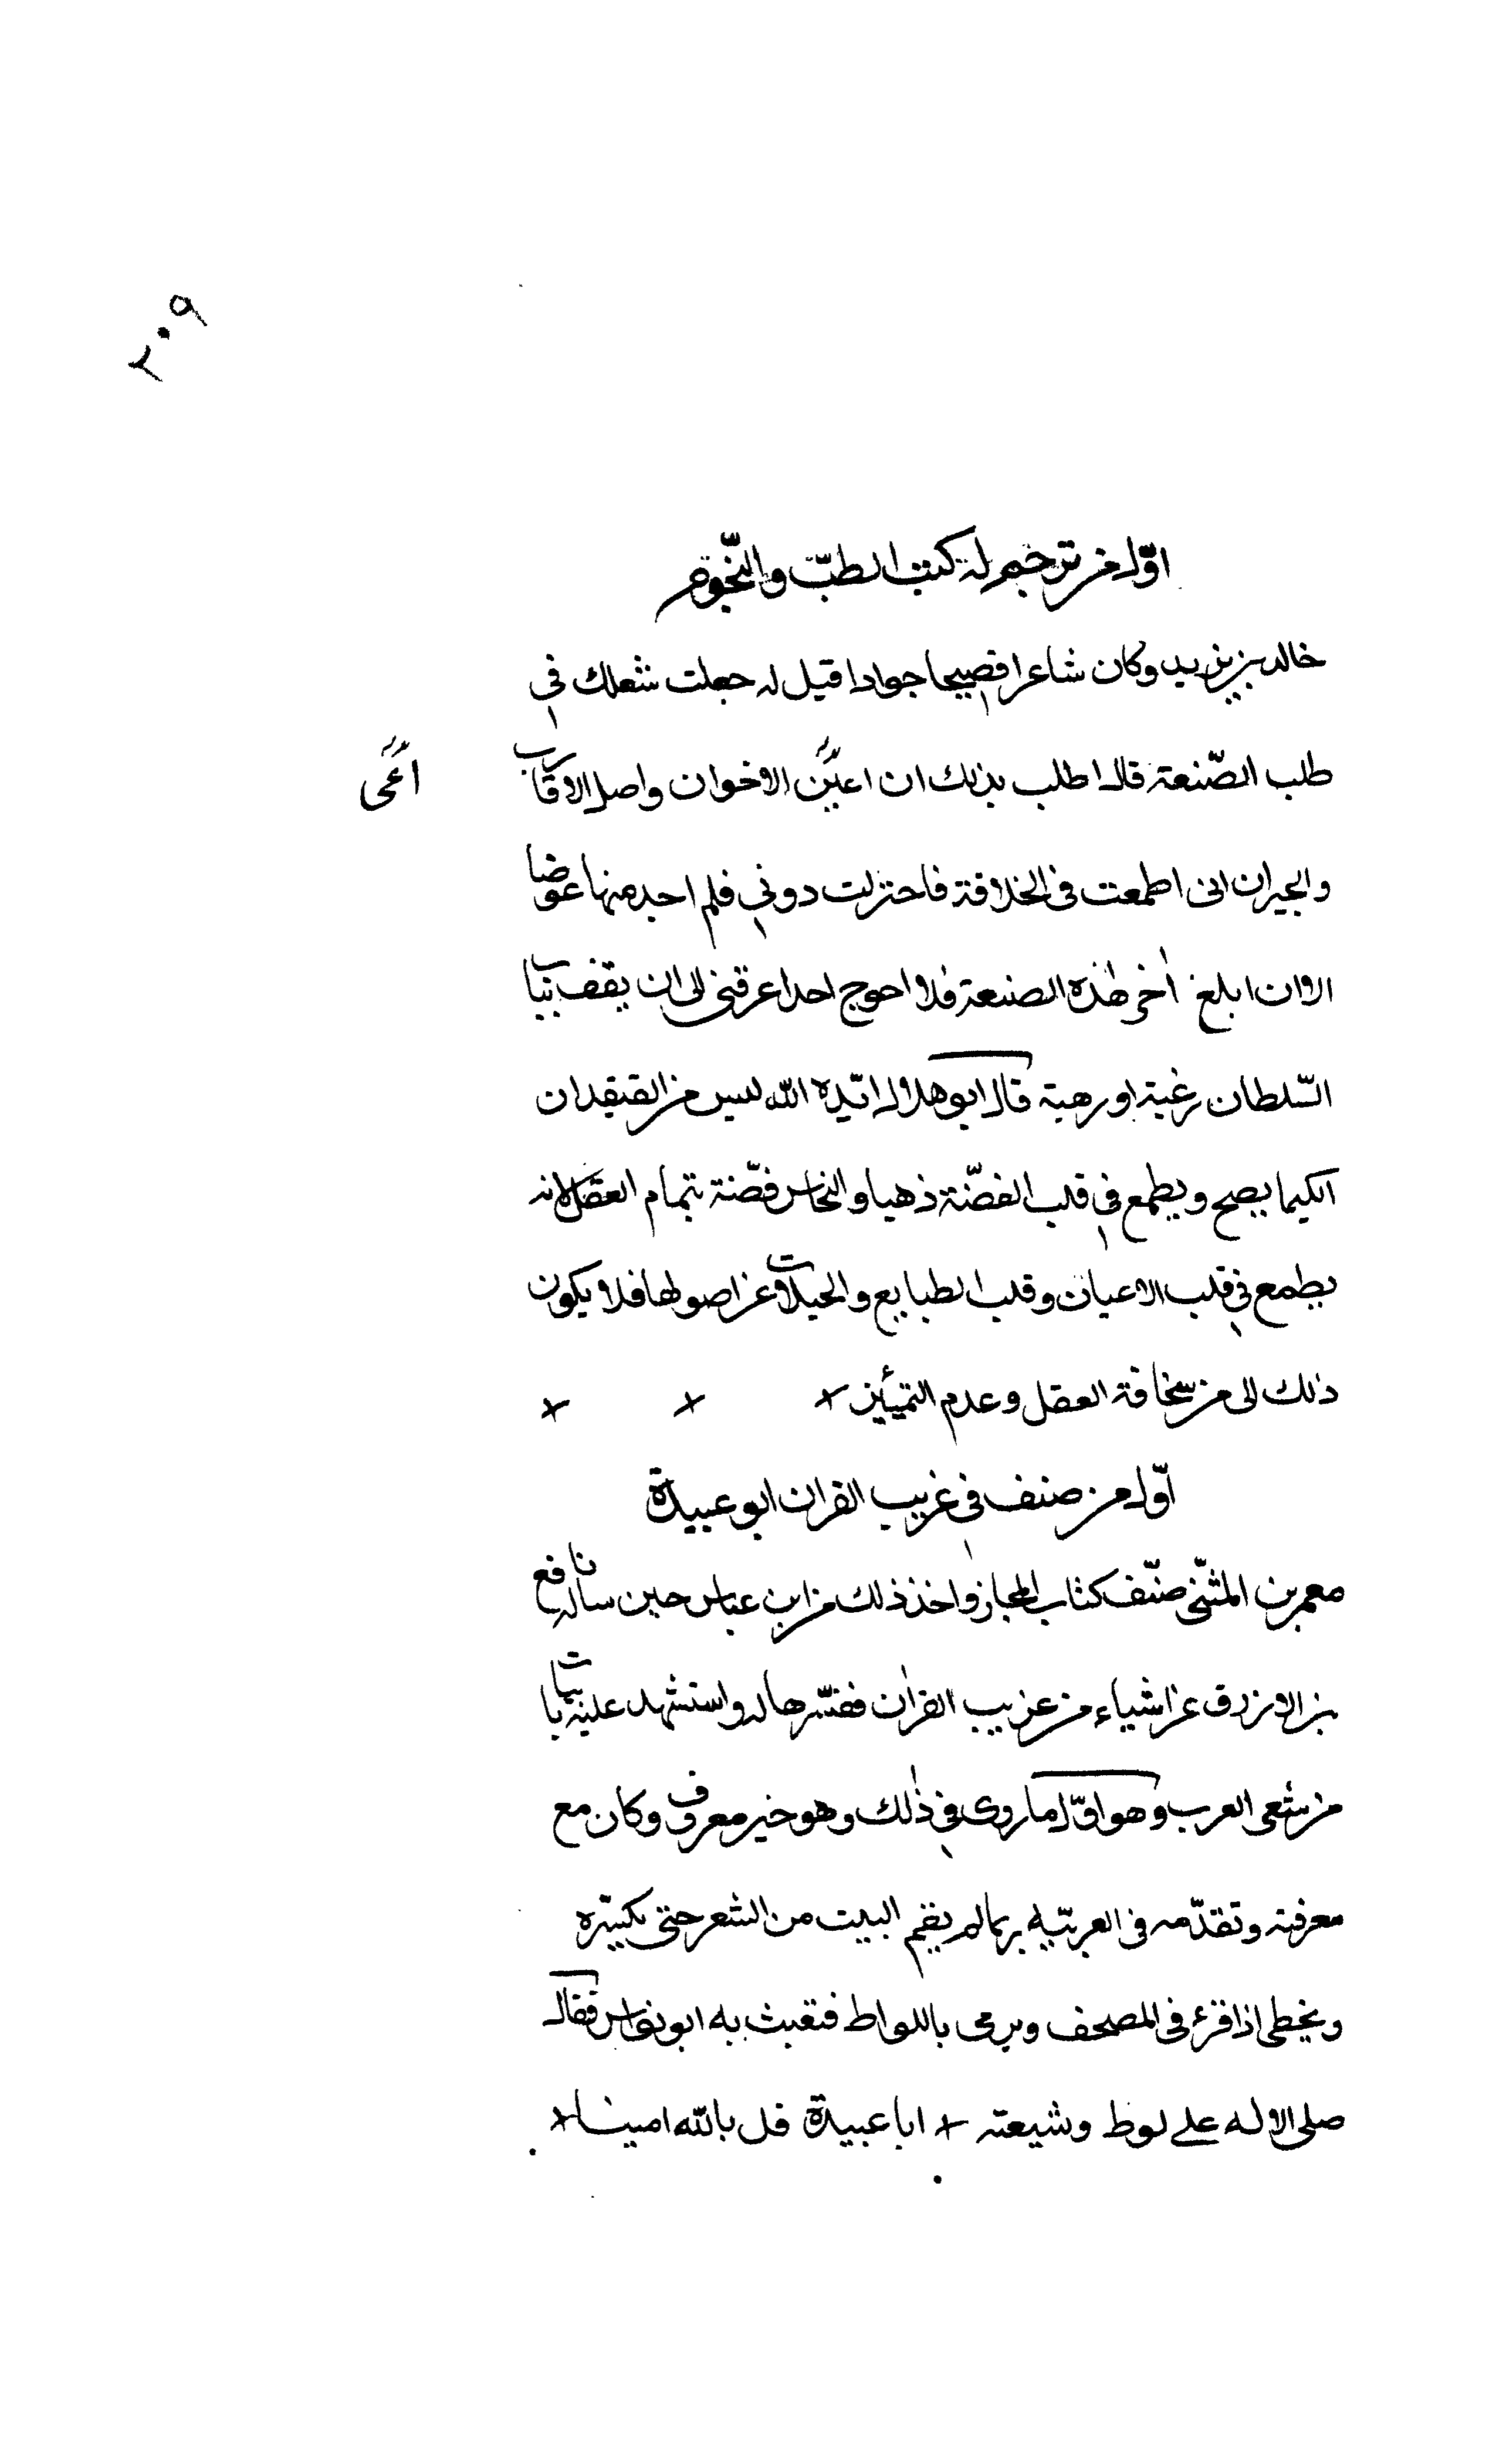 ٢٠٩
اوّل من ترجم له كتب الطبّ والنّجوم
خالد بن يزيد وكان شاعرا فصيحا جوادا قيل له جعلت شغلك في
طلب الصّنعة قال اطلب بذلك ان اعين الاخوان واصل الاقارب
اعى
والجيران انى اطمعت في الخلافة فاحتزلت دوني فلم اجد منها عوضا
الا ان ابلغ اخر هذه الصنعة فلا احوج احدا عرفنى الى ان يقف بباب
السّلطان رغبة او رهبة قال ابو هلال ايّده الله ليس من اعتقد ان
الكيما يصح ويطمع في قلب الفضّة ذهبا والنحاس فضّة بتمام العقل لانه
يطمع في قلب الاعيان وقلب الطبايع والحيلات عن اصولها فلا يكون
ذلك الى من سخافة العقل وعدم التمييز
اوّل من صنف في غريب القران ابو عبيدة
معمر بن المثنّى صنّف كتاب المجاز واخذ ذلك من ابن عباس حين ساله نافع
بن الازرق عن اشياء من غريب القران ففسّرها له واستشهد عليه بابيات
من شعر العرب وهو اوّل ما روى في ذلك وهو خبر معروف وكان مع
معرفته وتقدّمه فى العربيّه ربما لم يقم البيت من الشعر حتى يكسّره
ويخطى اذا قرء فى المصحف ويرمى باللواط فتعبث به ابو نواس فقال
صلى الاله على لوط وشيعته ابا عبيدة قل بالله امينا